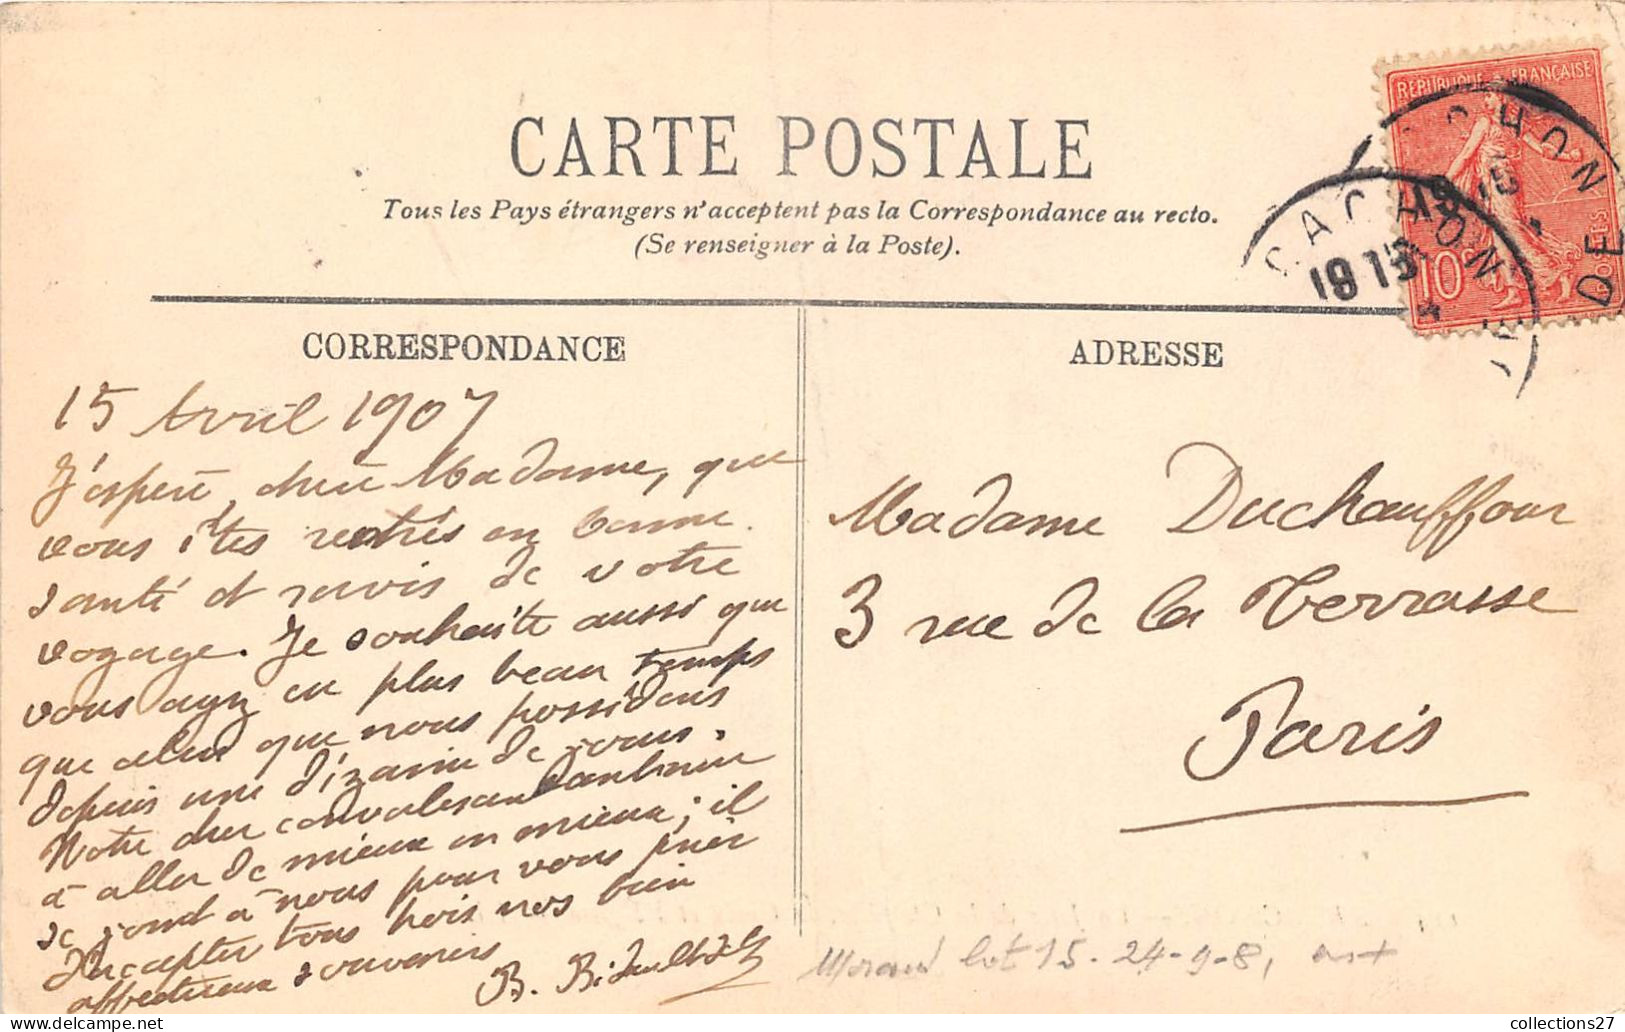 CARTE POSTALE
Tous les Pays étrangers n'acceptent pas la Correspondance au recto.
(Se renseigner à la Poste).
RÉPUBLIQUE FRANÇAISE
10
POSTES
CACHON
19 15
4
DE
CORRESPONDANCE
15 Avril 1907
J'espère, chère Madame, que
vous êtes rentrés en bonne
santé et ravis de votre
voyage. Je souhaite aussi que
vous ayez eu plus beau temps
que celui que nous possédons
depuis une dizaine de jours.
Notre cher convalescent continue
à aller de mieux en mieux ; il
se joint à nous pour vous prier
d'accepter tous trois nos bien
affectueux souvenirs
B.
ADRESSE
Madame Duchauffour
3 rue de la Terrasse
Paris
lot 15 - 24-9-8,
collections27